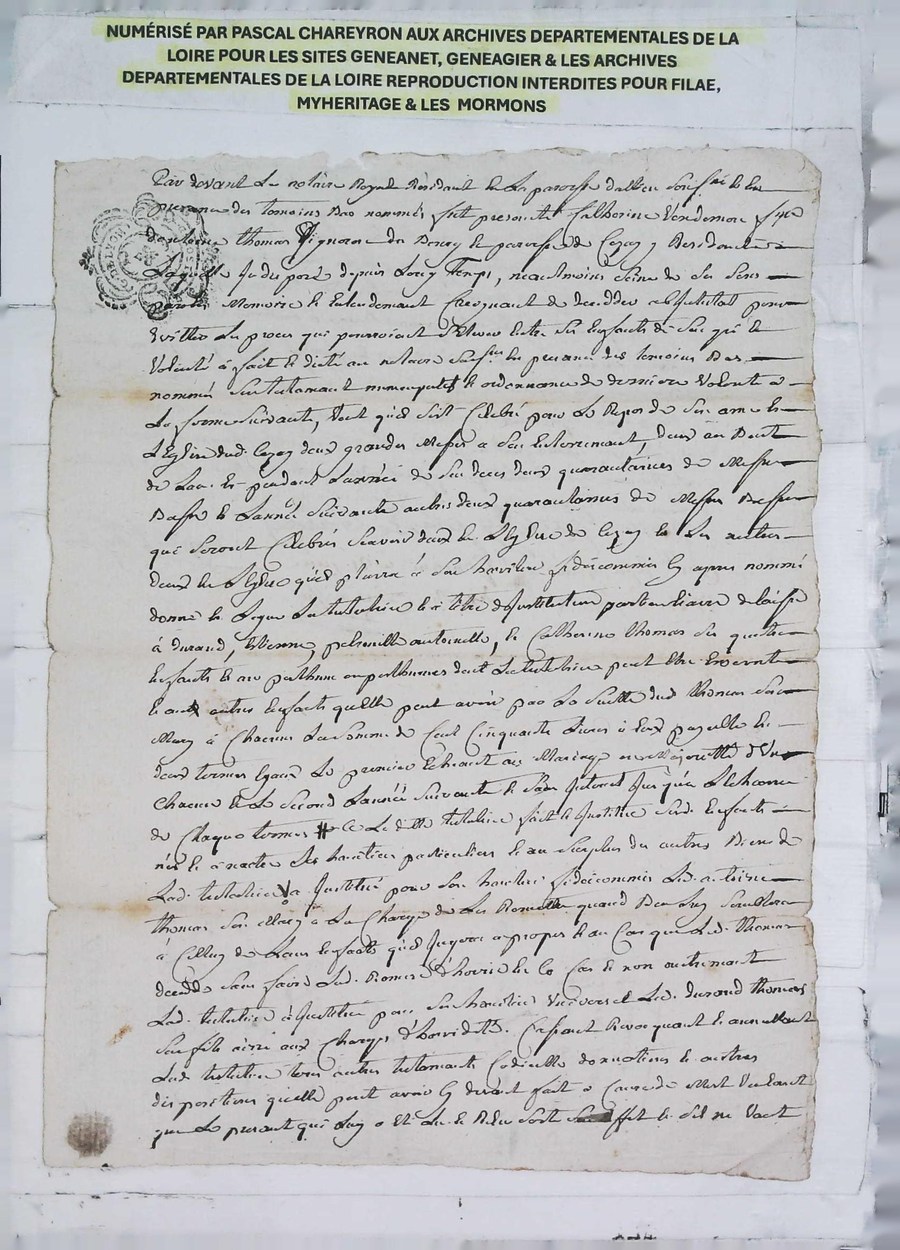 NUMÉRISÉ PAR PASCAL CHAREYRON AUX ARCHIVES DEPARTEMENTALES DE LA
LOIRE POUR LES SITES GENEANET, GENEAGIER & LES ARCHIVES
DEPARTEMENTALES DE LA LOIRE REPRODUCTION INTERDITES POUR FILAE,
MYHERITAGE & LES MORMONS
Par devant Le notaire Royal Residant La paroisse
presance des temoins Bas nommés fut presante Catherine
dantoine thomas Vigneron du Bourg et paroisse de Cezay y Residante
Laquelle depuis Long Temps, neantmoins Saine de Ses Sens
parolle Memoire et Entendemant Creignant de decedder abJntestat pour
Evitter Les proces qui pourroient Entre Ses Enfants de Son gré et
Volonté à fait et dicté au notaire en presance des temoins Bas
nommé Son testamant nuncupatif et ordonnance de derniere Volonté
La forme Suivante, Veut quil Soit Celebré pour Le Repos de Son ame
LEglise dud. Cezay deux grandes Messes a Son Enterremant, deux au Bout
de Lan Et pendant Lannée de Son deces deux quarantaines de Messes
Basses et Lannée Suivante autres deux quarantaines de Messes Basses
qui Seront Celebrés Scavoir deux En LEglise de Cezay et Les autres
deux En LEglise quil plaira à Son heritier fideicommis Cy apres nommé
donne et Legue La testatrice et à titre dJnstitution particuliaire delaisse
à durand, Etienne petronille antoinette, et Catherine thomas Ses
Enfants et au posthume ou posthumes dont La testatrice peut Etre Enceinte
et aux autres Enfants quelle peut avoir par La Suitte dud. thomas Son
Mary à Chacun La Somme de Cent Cinquante Livres à Eux payable En
deux termes Egaux Le premier Echeant au Mariage ou Majoritté
Chacun et Le Second Lannée Suivante et Sans Jnterest Jusquà LEcheance
de Chaque terme # La ditte testatrice fait et Jnstitue Sesd. Enfants
nés et à naitre Ses heritiers particuliers et au Surplus des autres Biens de
Lad. testatrice a Jnstitué pour Son heritier fideicommis Led. antoine
thomas Son Mary à La Charge de Les Remettre quand Bon Luy Semblera
à Celluy de Leurs Enfants quil Jugera apropos et au Cas que Led. thomas
decede Sans faire Lad. Remise dhoirie En Ce Cas et non autrement
Lad. testatrice à Jnstitué pour Son heritier Vniversel Led. durand thomas
Son fils ainé aux Charges dhoiridité. Cassant Revoquant et annullant
Lad. testatrice tous autres testamants Codicille donnations et autres
dispositions quelle peut avoir Cy devant fait a Cause de Mort Voulant
que Le presant qui Luy a Eté Lu et Relu Sorte Son Effet et Sil ne Vaut